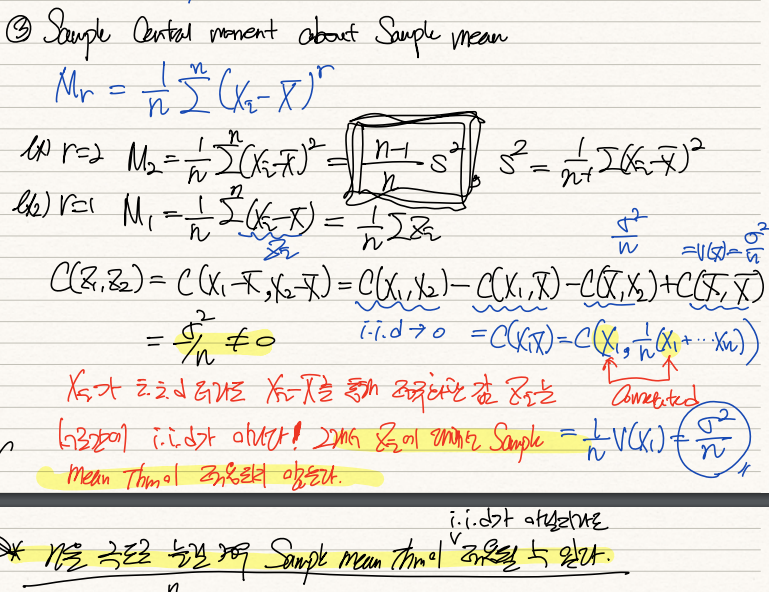 ③ Sample Central moment about Sample mean
Mr = 1/n Σⁿ (Xᵢ - X̄)ʳ
ex) r=2 M₂ = 1/n Σⁿ (Xᵢ-X̄)² = n-1/n S², S² = 1/n-1 Σ(Xᵢ-X̄)²
ex2) r=1 M₁ = 1/n Σⁿ (Xᵢ-X̄) = 1/n ΣZᵢ
Zᵢ
σ²/n
=V(X̄)=σ²/n
C(Z₁,Z₂) = C(X₁-X̄,X₂-X̄) = C(X₁,X₂) - C(X₁,X̄) - C(X̄,X₂) + C(X̄,X̄)
= σ²/n ≠ 0
i.i.d → 0
= C(X₁X̄) = C(X₁, 1/n(X₁+⋯Xn))
Xᵢ가 i.i.d 더라도 Xᵢ-X̄를 통해 값 Zᵢ는
i.i.d가 아니다! Zᵢ에 Sample
= 1/n V(X₁) = σ²/n
mean Thm이 적용되지 않는다.
i.i.d가 아니더라도
* n을 극도로 늘릴 경우 Sample mean thm이 적용될 수 있다.
n